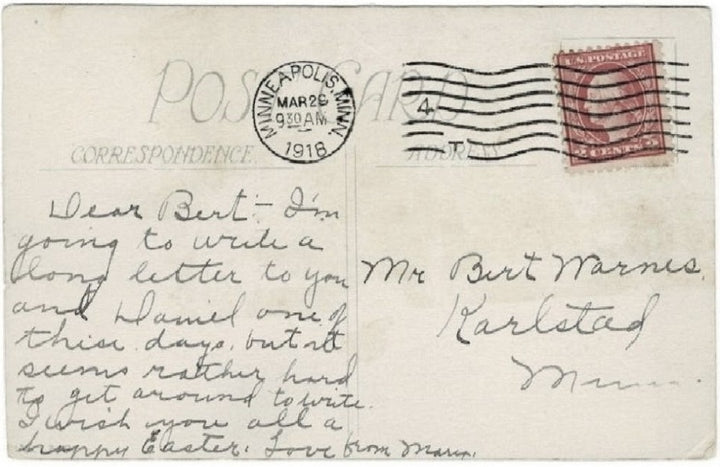 POST CARD
MINNEAPOLIS, MINN.
MAR 29
930 AM
1918
4
T
U.S. POSTAGE
2 CENTS 2
CORRESPONDENCE
ADDRESS
Dear Bert - I'm
going to write a
long letter to you
and Daniel one of
these days, but it
seems rather hard
to get around to write.
I wish you all a
happy Easter. Love from Marie.
Mr Bert Warnes,
Karlstad
Minn.